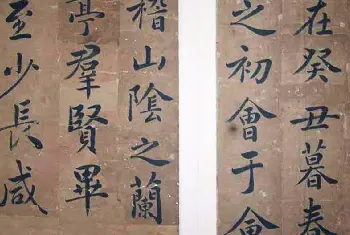 在癸丑暮春
之初會于會
稽山陰之蘭
亭羣賢畢
至少長咸